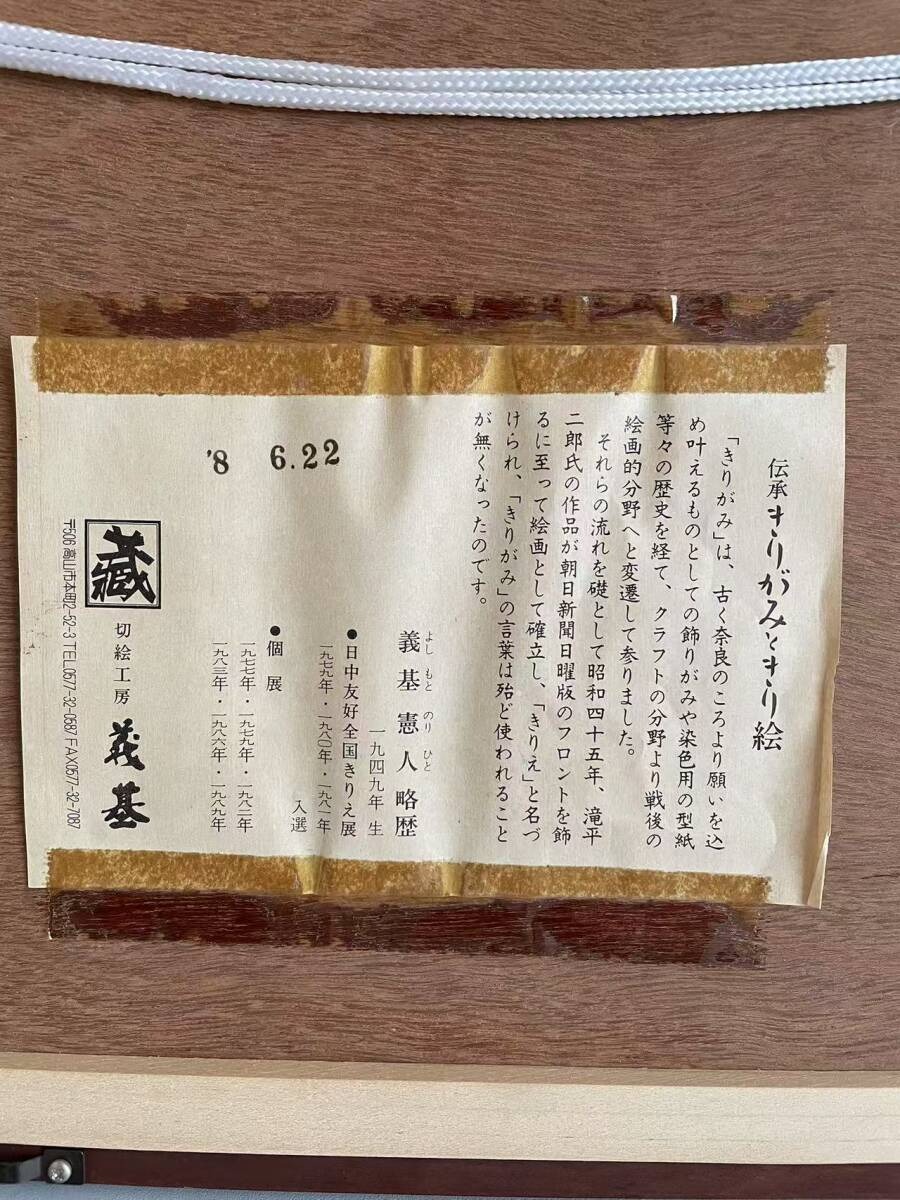 伝承きりがみときり絵
「きりがみ」は、古く奈良のころより願いを込
め叶えるものとしての飾りがみや染色用の型紙
等々の歴史を経て、クラフトの分野より戦後の
絵画的分野へと変遷して参りました。
それらの流れを礎として昭和四十五年、滝平
二郎氏の作品が朝日新聞日曜版のフロントを飾
るに至って絵画として確立し、「きりえ」と名づ
けられ、「きりがみ」の言葉は殆ど使われること
が無くなったのです。
義基憲人略歴
よしもとのりひと
一九四九年生
●日中友好全国きりえ展
一九七九年・一九八〇年・一九八一年
入選
●個展
一九七七年・一九七九年・一九八二年
一九八三年・一九八六年・一九八九年
'8 6.22
藏
切絵工房 義基
〒506 高山市本町2-52-3 TEL0577-32-0687 FAX0577-32-7087